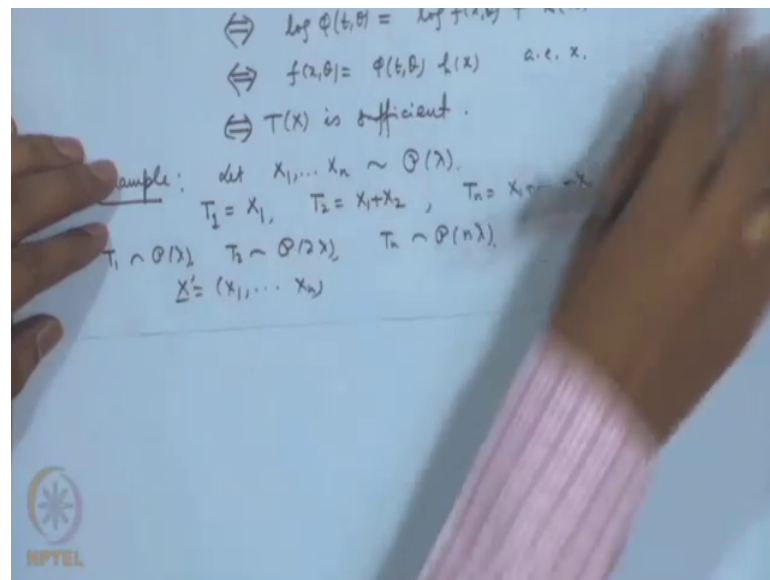 ⇔ log φ(t,θ) = log f(x,θ) +
⇔ f(x,θ) = φ(t,θ) h(x) a.e. x.
⇔ T(X) is sufficient.
ample: Let X₁,... Xₙ ~ P(λ).
T₁ = X₁, T₂ = X₁+X₂, Tₙ = X₁+
T₁ ~ P(λ), T₂ ~ P(2λ), Tₙ ~ P(nλ).
X' = (X₁,... Xₙ)
NPTEL